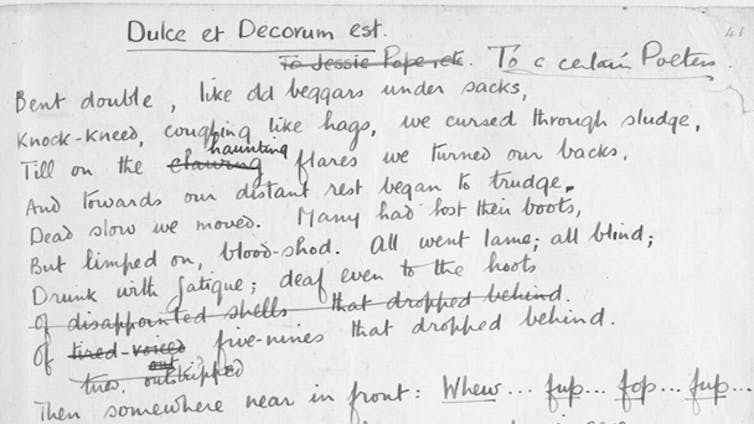 Dulce et Decorum est.
41
To Jessie Pope etc. To a certain Poetess.
Bent double, like old beggars under sacks,
Knock-kneed, coughing like hags, we cursed through sludge,
haunting
Till on the clawing flares we turned our backs,
And towards our distant rest began to trudge.
Dead slow we moved. Many had lost their boots,
But limped on, blood-shod. All went lame; all blind;
Drunk with fatigue; deaf even to the hoots
of disappointed shells that dropped behind.
Of tired-voiced five-nines that dropped behind.
outstripped
Then somewhere near in front: Whew... fup... fop... fup...